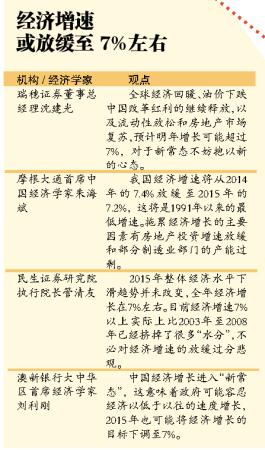 经济增速
或放缓至 7%左右
机构 / 经济学家
观点
瑞穗证券董事总
经理沈建光
全球经济回暖、油价下跌
中国改革红利的继续释放，以
及流动性放松和房地产市场
复苏，预计明年增长可能超过
7%，对于新常态不妨抱以新
的心态。
摩根大通首席中
国经济学家朱海
斌
我国经济增速将从2014
年的 7.4%放缓至 2015 年的
7.2%，这将是1991年以来的最
低增速。拖累经济增长的主要
因素有房地产投资增速放缓
和部分制造业部门的产能过
剩。
民生证券研究院
执行院长管清友
2015年整体经济水平下
滑趋势并未改变，全年经济增
长在7%左右。目前经济增速7%
以上实际上比2003年至2008
年已经挤掉了很多“水分”，不
必对经济增速的放缓过分悲
观。
澳新银行大中华
区首席经济学家
刘利刚
中国经济增长进入“新常
态”，这意味着政府可能容忍
经济以低于以往的速度增长，
2015年也可能将经济增长的
目标下调至7%。